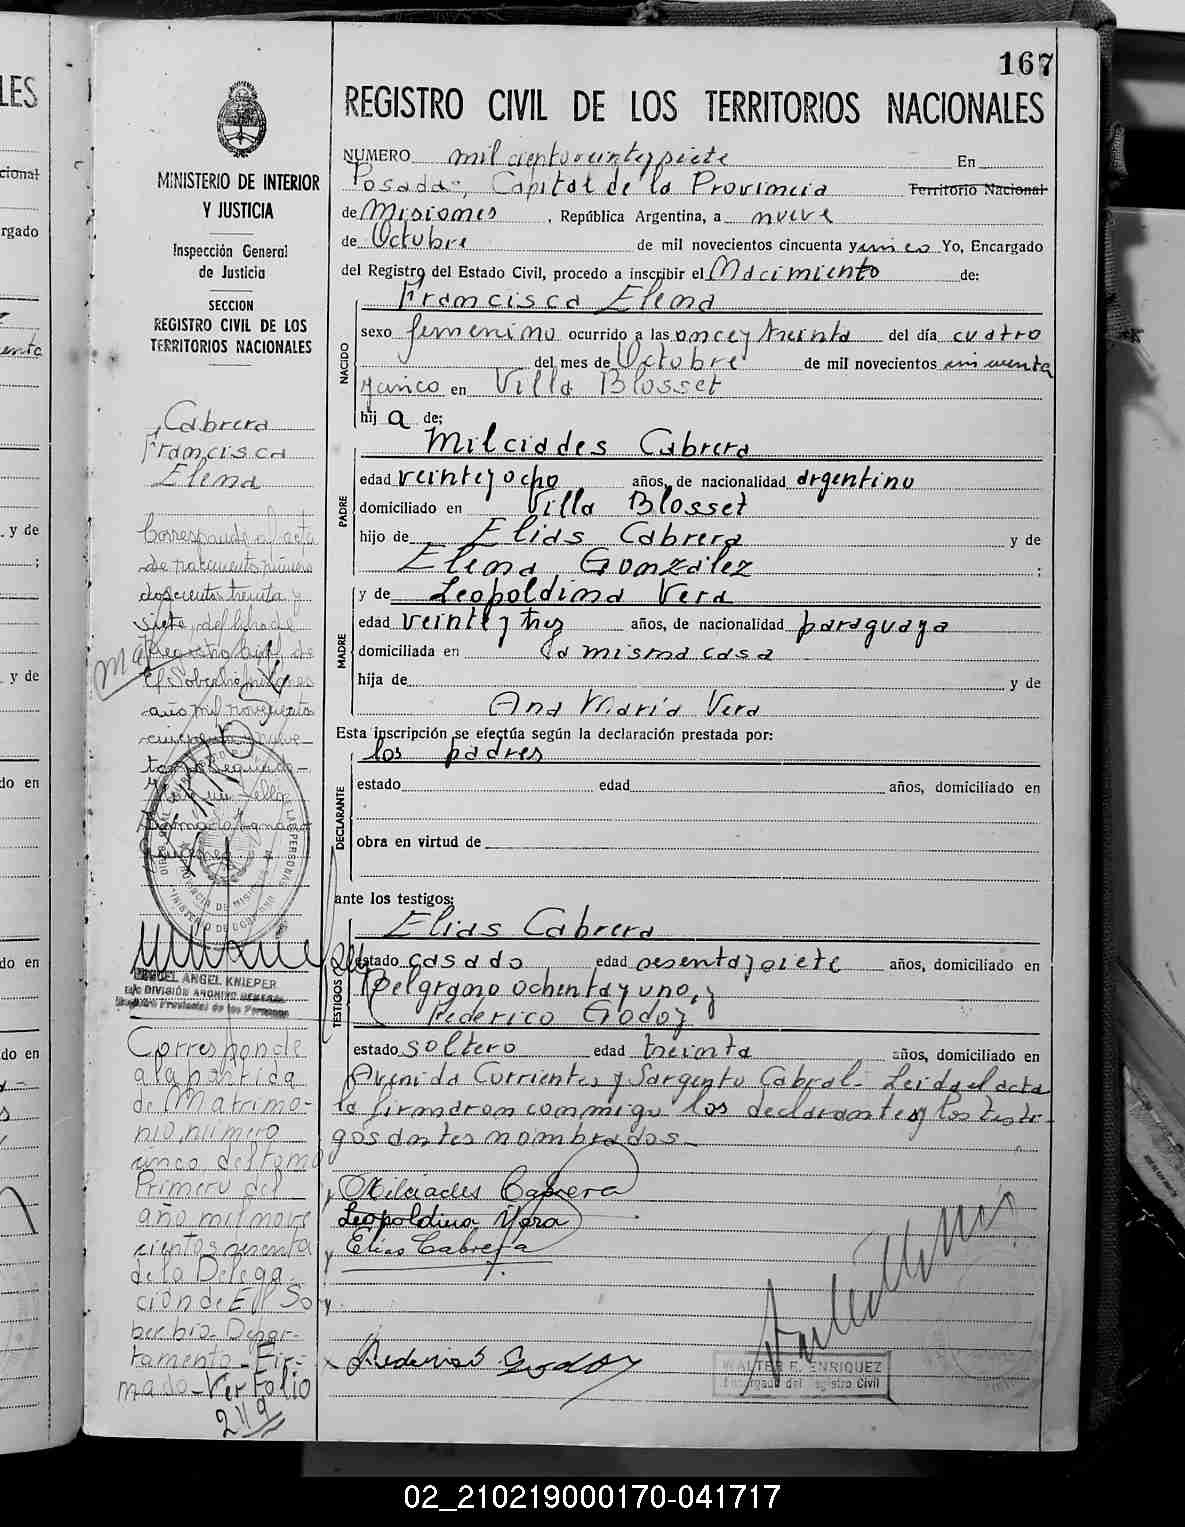 LES
cional
rgado
y de
;
y de
do en
do en
do en
167
MINISTERIO DE INTERIOR
Y JUSTICIA
Inspección General
de Justicia
SECCION
REGISTRO CIVIL DE LOS
TERRITORIOS NACIONALES
Cabrera
Francisca
Elena
Corresponde al acta
de nacimiento número
doscientos treinta y
siete del libro de
El Soberbio Misiones
año mil novecientos
MIGUEL ANGEL KNIEPER
DIVISIÓN ARCHIVO GENERAL
Registro Provincial de las Personas
Corresponde
a la partida
de Matrimo-
nio número
cinco del tomo
Primero del
año mil nove
cientos sesenta
de la Delega
ción de El So
berbio. Depar-
tamento - Fir-
mado - Ver Folio
249
REGISTRO CIVIL DE LOS TERRITORIOS NACIONALES
NUMERO mil ciento veinte y siete En
Posadas, Capital de la Provincia Territorio Nacional
de Misiones, República Argentina, a nueve
de Octubre de mil novecientos cincuenta y cinco Yo, Encargado
del Registro del Estado Civil, procedo a inscribir el Nacimiento de:
NACIDO
Francisca Elena
sexo femenino ocurrido a las once y treinta del día cuatro
del mes de Octubre de mil novecientos cincuenta
y cinco en Villa Blosset
hij a de;
PADRE
Milciades Cabrera
edad veinte y ocho años, de nacionalidad argentino
domiciliado en Villa Blosset
hijo de Elias Cabrera y de
Elena González ;
MADRE
y de Leopoldina Vera
edad veinte y tres años, de nacionalidad paraguaya
domiciliada en la misma casa
hija de y de
Ana María Vera
Esta inscripción se efectúa según la declaración prestada por:
DECLARANTE
los padres
estado edad años, domiciliado en
obra en virtud de
ante los testigos:
TESTIGOS
Elias Cabrera
estado casado edad sesenta y siete años, domiciliado en
Belgrano ochenta y uno, y
Federico Godoy
estado soltero edad treinta años, domiciliado en
Avenida Corrientes y Sargento Cabral. Leida el acta
la firmaron conmigo los declarantes y los testi-
gos antes nombrados-
Milciades Cabrera
Leopoldina Vera
Elias Cabrera
Federico Godoy
WALTER E. ENRIQUEZ
Encargado del Registro Civil
02_210219000170-041717